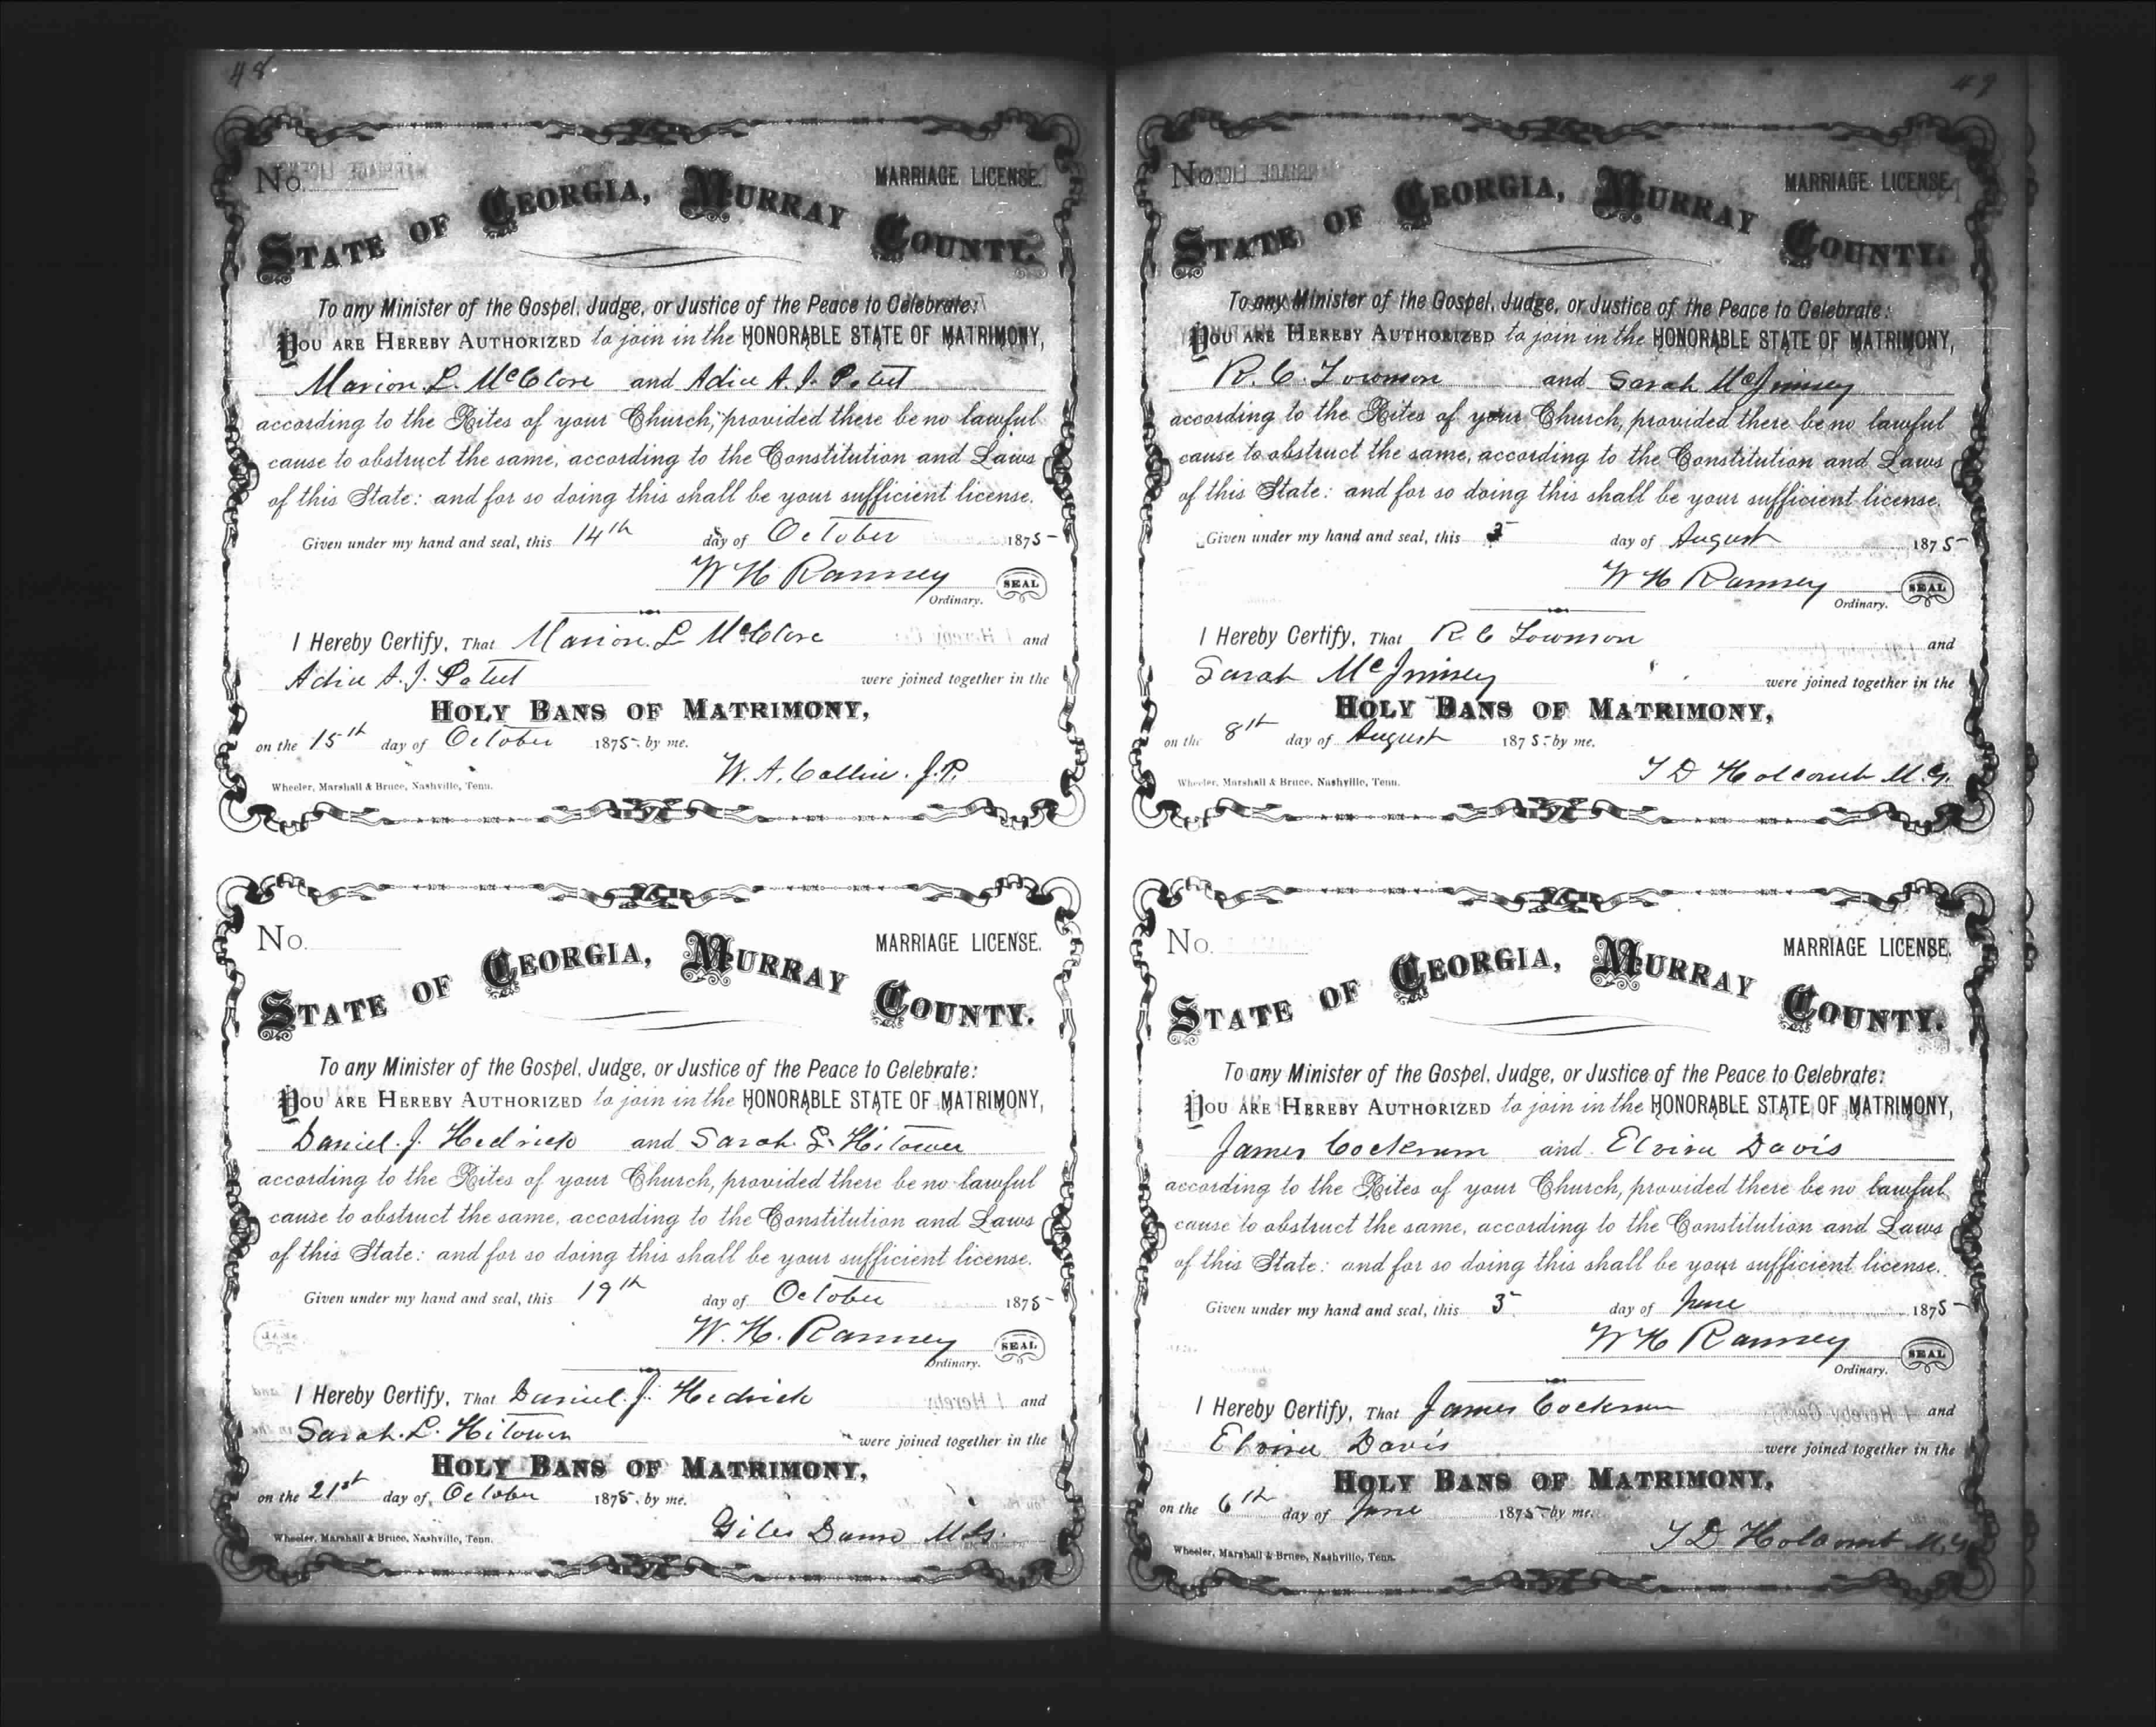 48
No.
MARRIAGE LICENSE.
STATE OF GEORGIA, MURRAY COUNTY.
To any Minister of the Gospel, Judge, or Justice of the Peace to Celebrate:
YOU ARE HEREBY AUTHORIZED to join in the HONORABLE STATE OF MATRIMONY,
Marion L. McClore and Adice A. J. Poteet
according to the Rites of your Church, provided there be no lawful
cause to obstruct the same, according to the Constitution and Laws
of this State: and for so doing this shall be your sufficient license.
Given under my hand and seal, this 14th day of October 1875
W H Ramsey SEAL
Ordinary.
I Hereby Certify, That Marion L McClore and
A. J. were joined together in the
HOLY BANS OF MATRIMONY,
on the 15th day of October 1875 by me.
W. A. J.P.
Wheeler, Marshall & Bruce, Nashville, Tenn.
No.
MARRIAGE LICENSE.
STATE OF GEORGIA, MURRAY COUNTY.
To any Minister of the Gospel, Judge, or Justice of the Peace to Celebrate:
YOU ARE HEREBY AUTHORIZED to join in the HONORABLE STATE OF MATRIMONY,
Daniel. J. Hedrick and Sarah L. Hitower
according to the Rites of your Church, provided there be no lawful
cause to obstruct the same, according to the Constitution and Laws
of this State: and for so doing this shall be your sufficient license.
Given under my hand and seal, this 19th day of October 1875
W. H. Ramsey SEAL
Ordinary.
I Hereby Certify, That Daniel. J. Hedrick and
Sarah. L. Hitower were joined together in the
HOLY BANS OF MATRIMONY,
on the 21st day of October 1875, by me.
Giles Dunn M.G.
Wheeler, Marshall & Bruce, Nashville, Tenn.
49
No.
MARRIAGE LICENSE.
STATE OF GEORGIA, MURRAY COUNTY.
To any Minister of the Gospel, Judge, or Justice of the Peace to Celebrate:
YOU ARE HEREBY AUTHORIZED to join in the HONORABLE STATE OF MATRIMONY,
R. C. Lowmon and Sarah
according to the Rites of your Church, provided there be no lawful
cause to obstruct the same, according to the Constitution and Laws
of this State: and for so doing this shall be your sufficient license.
Given under my hand and seal, this day of August 1875
W H Ramsey SEAL
Ordinary.
I Hereby Certify, That R. C Lowmon and
Sarah were joined together in the
HOLY BANS OF MATRIMONY,
on the 8th day of August 1875 by me.
T D Holcomb M.G.
Wheeler, Marshall & Bruce, Nashville, Tenn.
No.
MARRIAGE LICENSE.
STATE OF GEORGIA, MURRAY COUNTY.
To any Minister of the Gospel, Judge, or Justice of the Peace to Celebrate:
YOU ARE HEREBY AUTHORIZED to join in the HONORABLE STATE OF MATRIMONY,
James Cockrum and Elvira Davis
according to the Rites of your Church, provided there be no lawful
cause to obstruct the same, according to the Constitution and Laws
of this State: and for so doing this shall be your sufficient license.
Given under my hand and seal, this day of June 1875
W H Ramsey SEAL
Ordinary.
I Hereby Certify, That James Cockrum and
Elvira Davis were joined together in the
HOLY BANS OF MATRIMONY,
on the 6th day of June 1875 by me.
T D Holcomb M.G.
Wheeler, Marshall & Bruce, Nashville, Tenn.